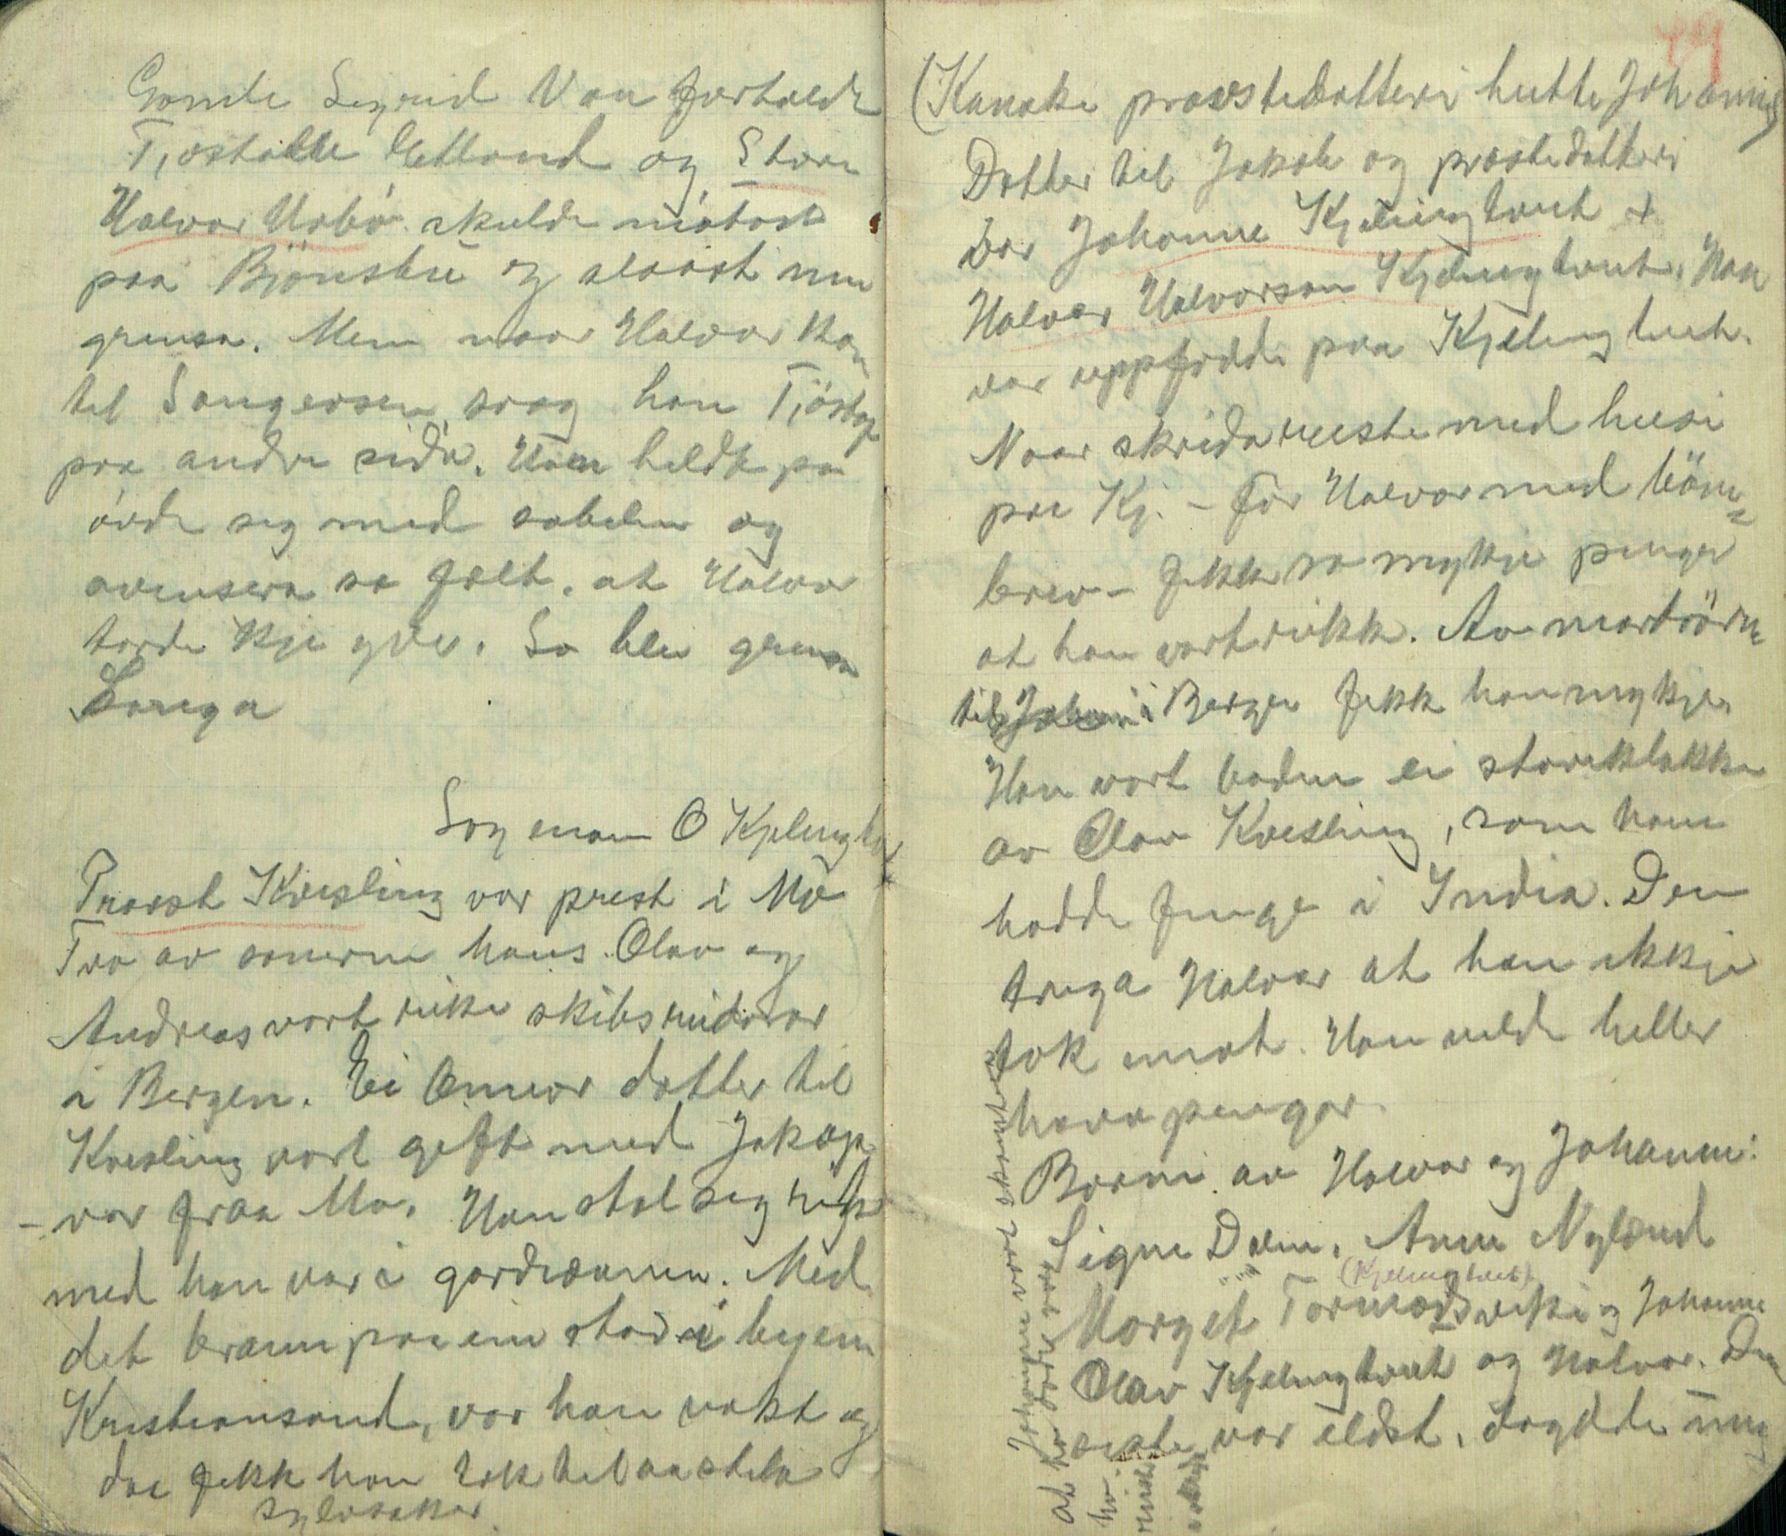 Gamle Sigrid Von fortalde
Tjostolv Østland og Store
Halvor Urbø skulde møtast
paa Bjønsbu og slaast um
grensa. Men naar Halvor kom
til Sangeosen saag han Tjøstof
paa andre sida. Han heldt paa
øvde seg med sabelen og
avensera so gælt, at Halvor
torde kje yver. So blei grensa
Langa
Sogeman O Kjelingtv
Proast Kvisling var prest i Mo
Tvo av sønerne hans Olav og
Andreas vart rike skibsreidarar
i Bergen. Ei annor dotter til
Kvisling vart gift med Jakop
– var fraa Mo. Han stal seg rik
med han var i gardvonnen. Med
det brann paa ein stad i byen
Kristiansand, var han vakt og
daa fekk han tak til aa stela
sylvsaker.
79
(Kanskje prostedotteri heitte Johanne)
Dotter til Jakob og prostedotteri
var Johanne Kjelingtveit +
Halvor Halvorson Kjelingtveit. Han
var uppfødde paa Kjelingtveit.
Naar skrida reiste med husi
paa Kj. – for Halvor med bøne-
brev – fekk so mykje pengar
at han vart rikk. Av morbrørne
til Johanne i Bergen fekk han mykje.
Han vart boden ei storeklokke
av Olav Kvisling, som han
hadde finge i India. Den
truga Halvor at han ikkje
tok imot. Han vilde heller
hava pengar.
Borni av Halvor og Johanne:
Signe Dalen, Anne Nyland
(Kjelingtveit)
Margit Tormodsvike og Johanne
Olav Kjelingtveit og Halvor. Den
siste var eldst, døydde ung
Johanne vart
at ho
ho